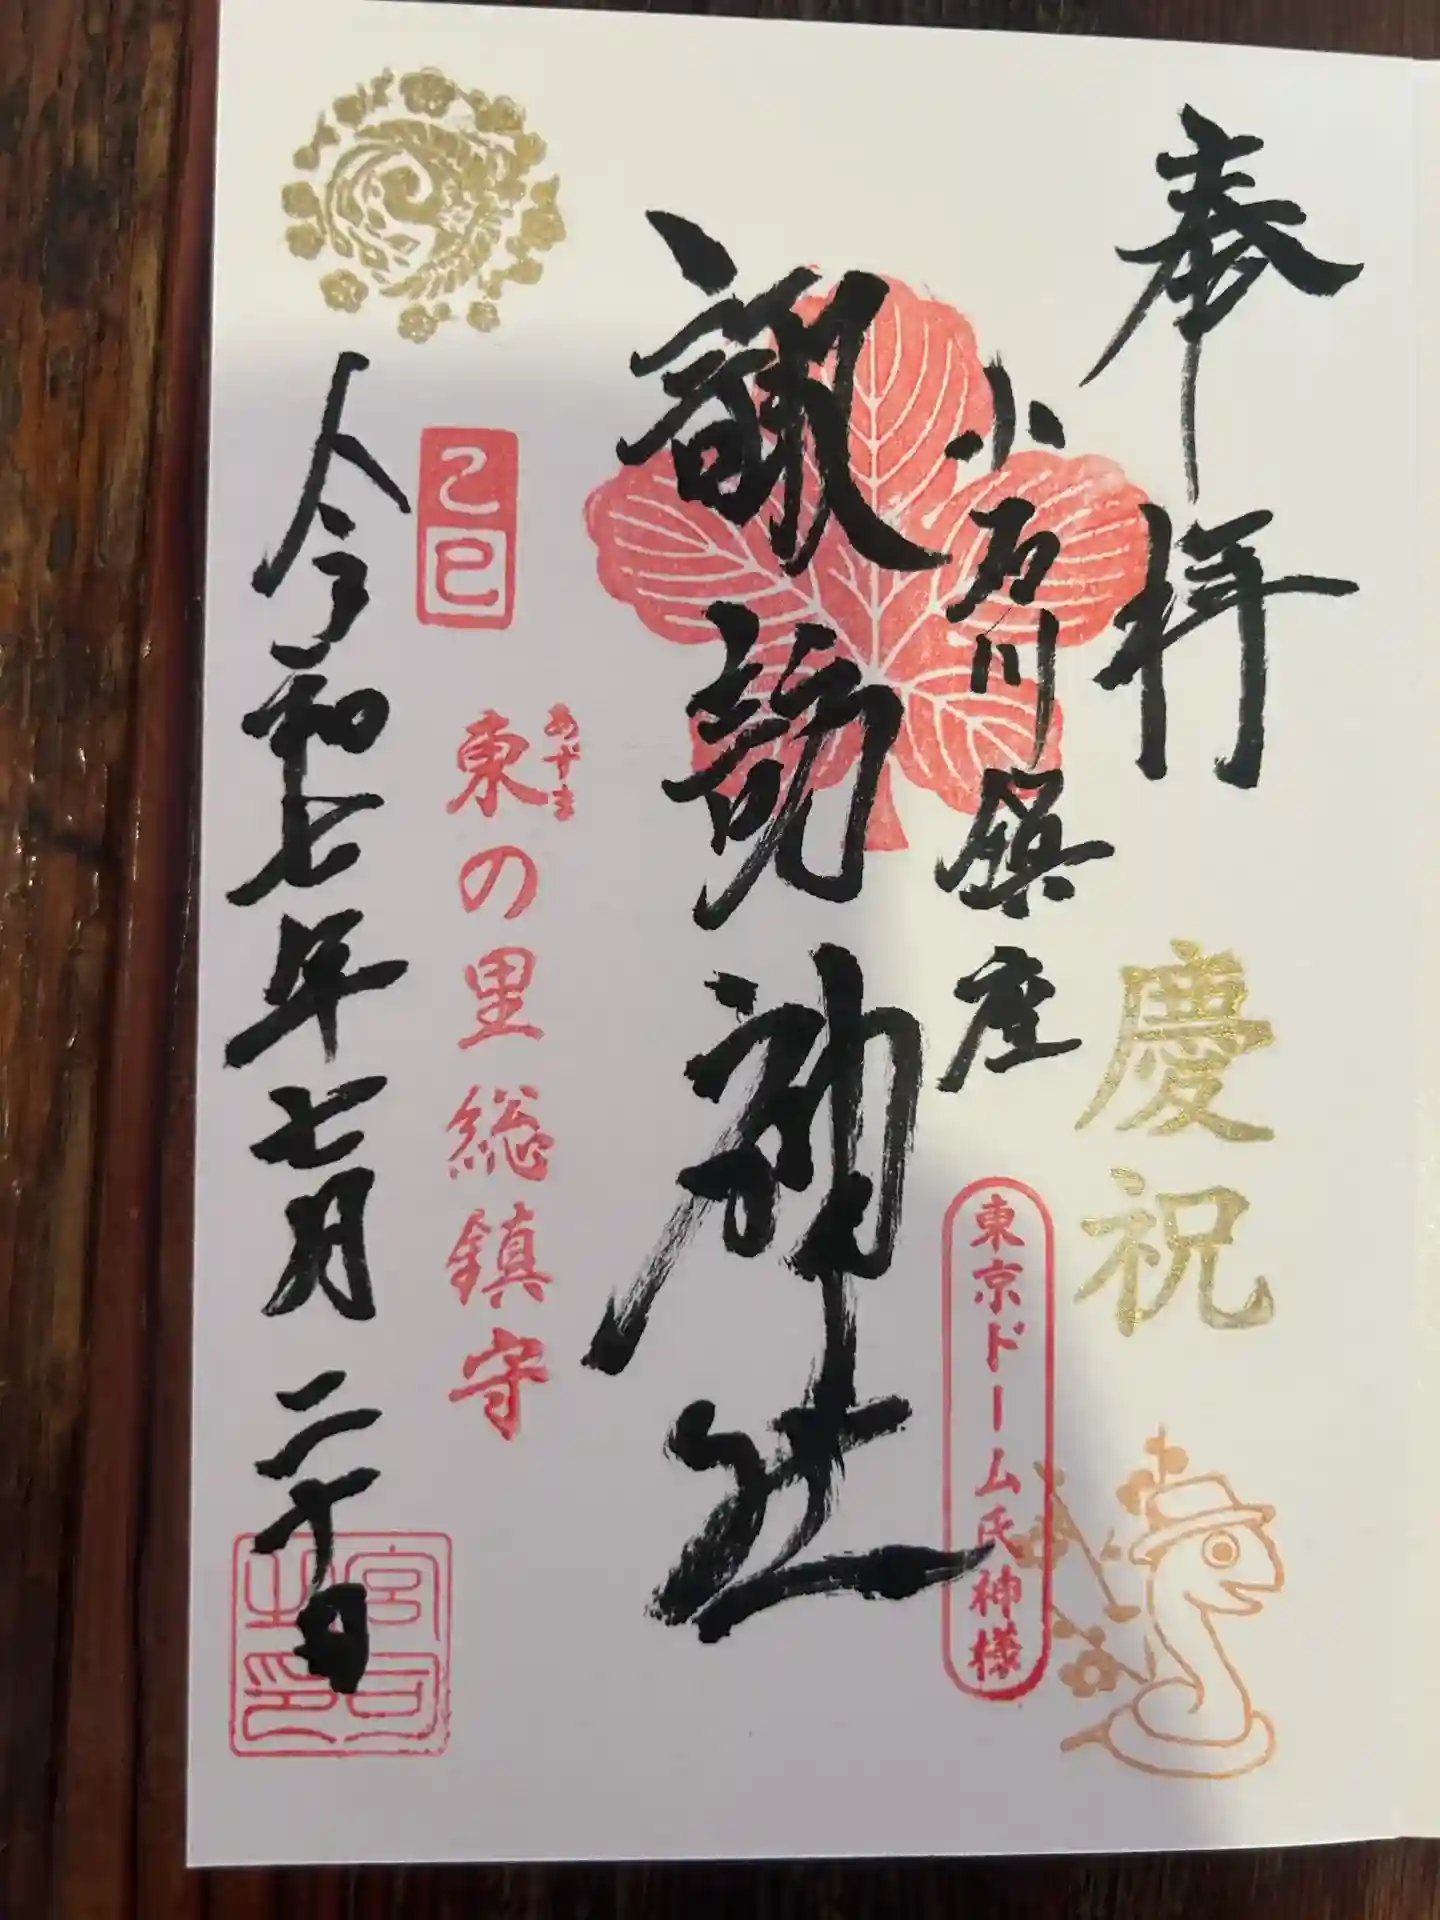 奉拝
慶祝
小石川鎮座
東京ドーム氏神様
諏訪神社
あずま
東の里総鎮守
乙巳
令和七年七月二十日
宮司之印